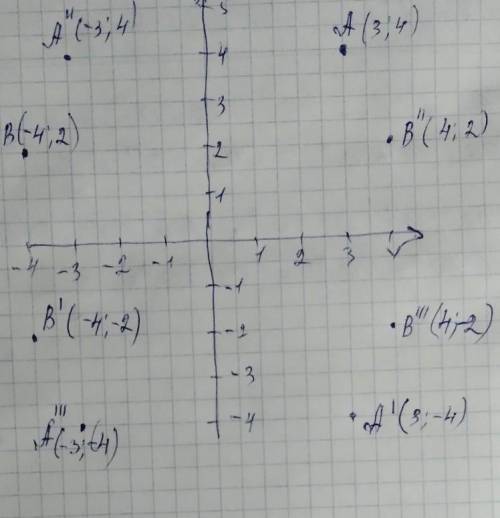 5
A'' (-3; 4)
A (3; 4)
4
3
B (-4; 2)
2
B'' (4; 2)
1
-4 -3 -2 -1 1 2 3
-1
B' (-4; -2)
-2
B''' (4; -2)
-3
A''' (-3; -4)
-4
A' (3; -4)